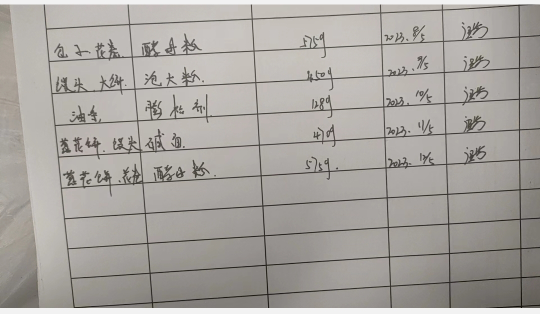 包子花卷 酵母粉 575g 2023.8/5
馒头.大饼. 泡大粉. 450g 2023.9/5
油条, 膨松剂 128g 2023.10/5
葱花饼.馒头 碱面 470g 2023.11/5
葱花饼.花卷 酵母粉. 575g. 2023.12/5